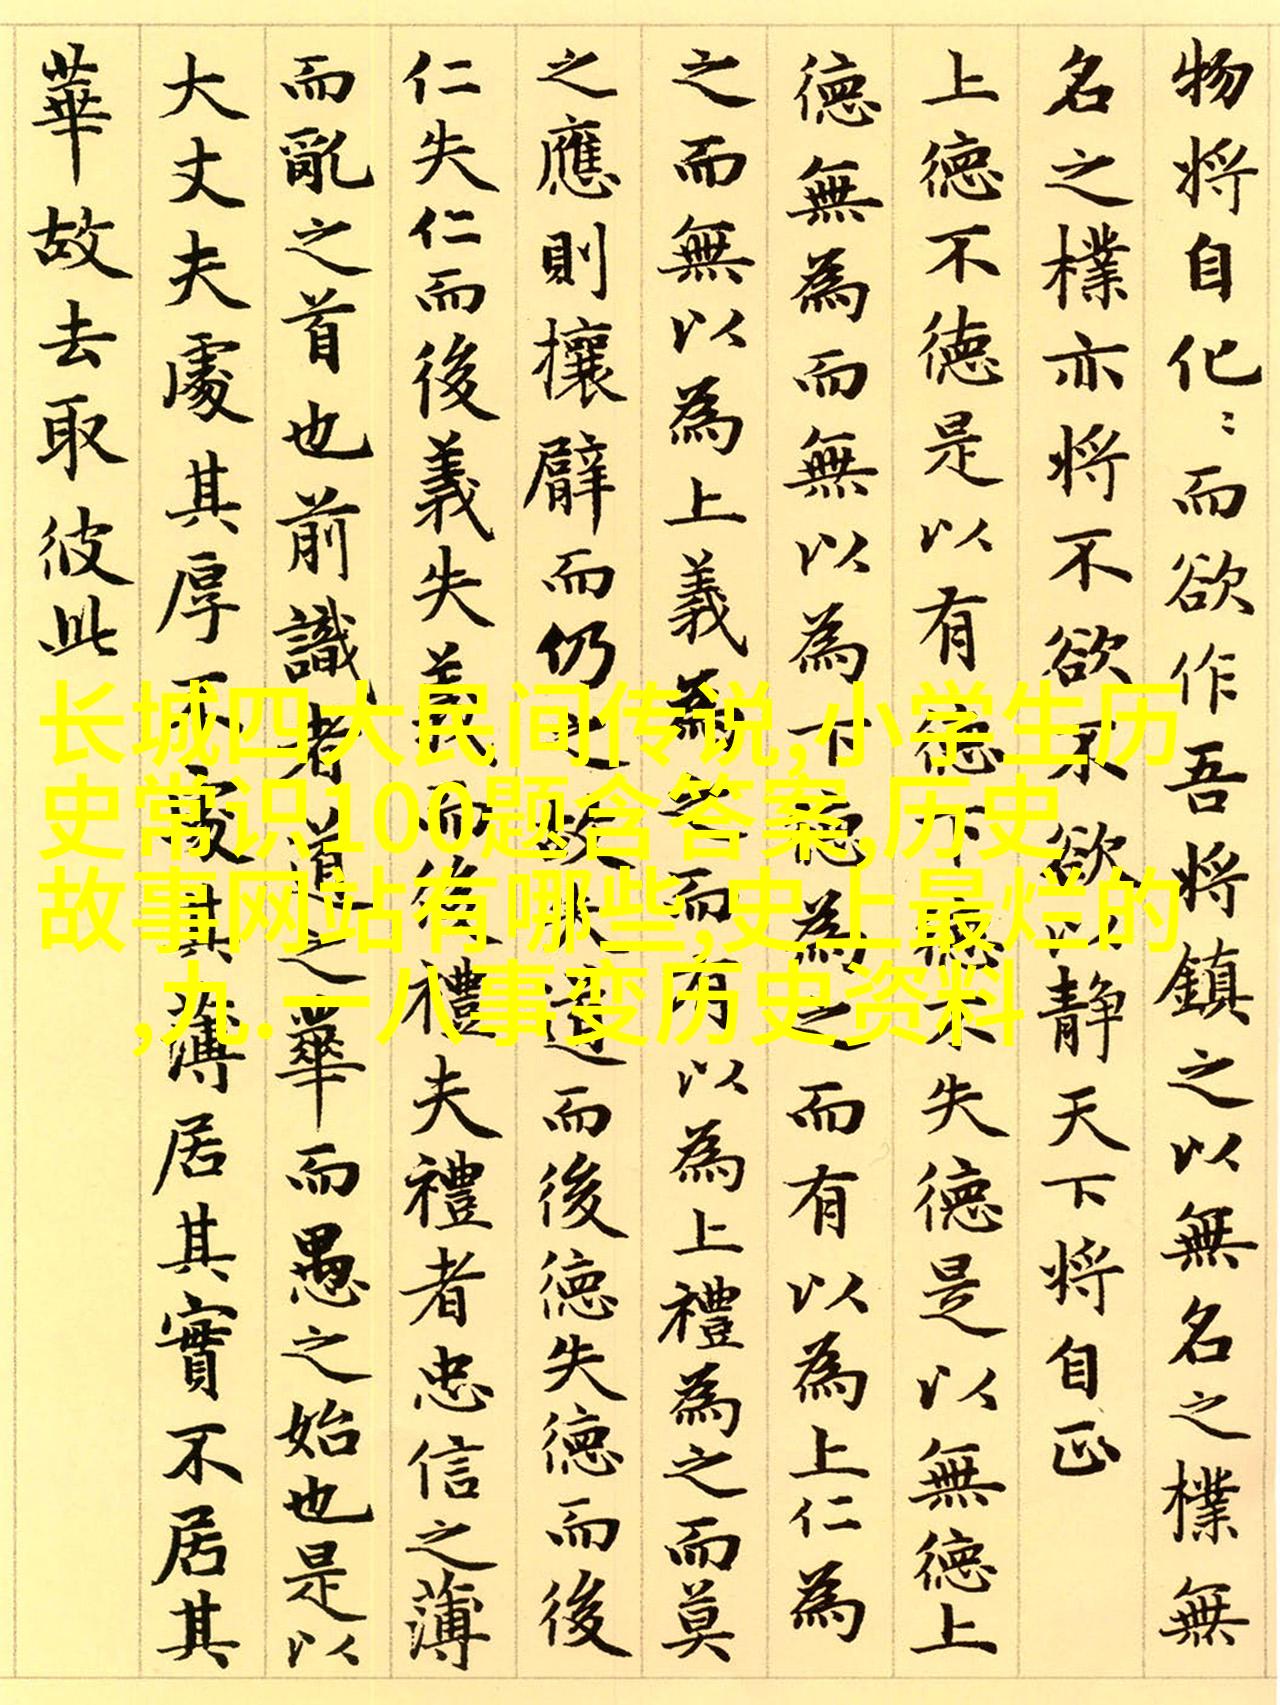 物将自化〻而欲作吾将鎮之以無名之樸無
名之樸亦将不欲不欲以静天下将自正
上德不德是以有德下德不失德是以無德上
德無為而無以為下德為之而有以為上仁為
之而無以為上義為之而有以為上禮為之而莫
之應則攘臂而仍之故失道而後德失德而後
仁失仁而後義失義而後禮夫禮者忠信之薄
而亂之首也前識者道之華而愚之始也是以
大丈夫處其厚不處其薄居其實不居其
華故去取彼此
长城四大民间传说,小学生历
史常识100题含答案,历史
故事网站有哪些,史上最烂的
,九.一八事变历史资料